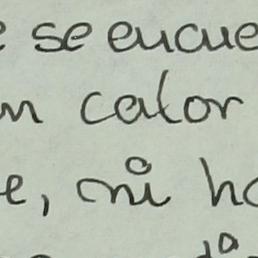 e se encue
n calor
e, ni ha